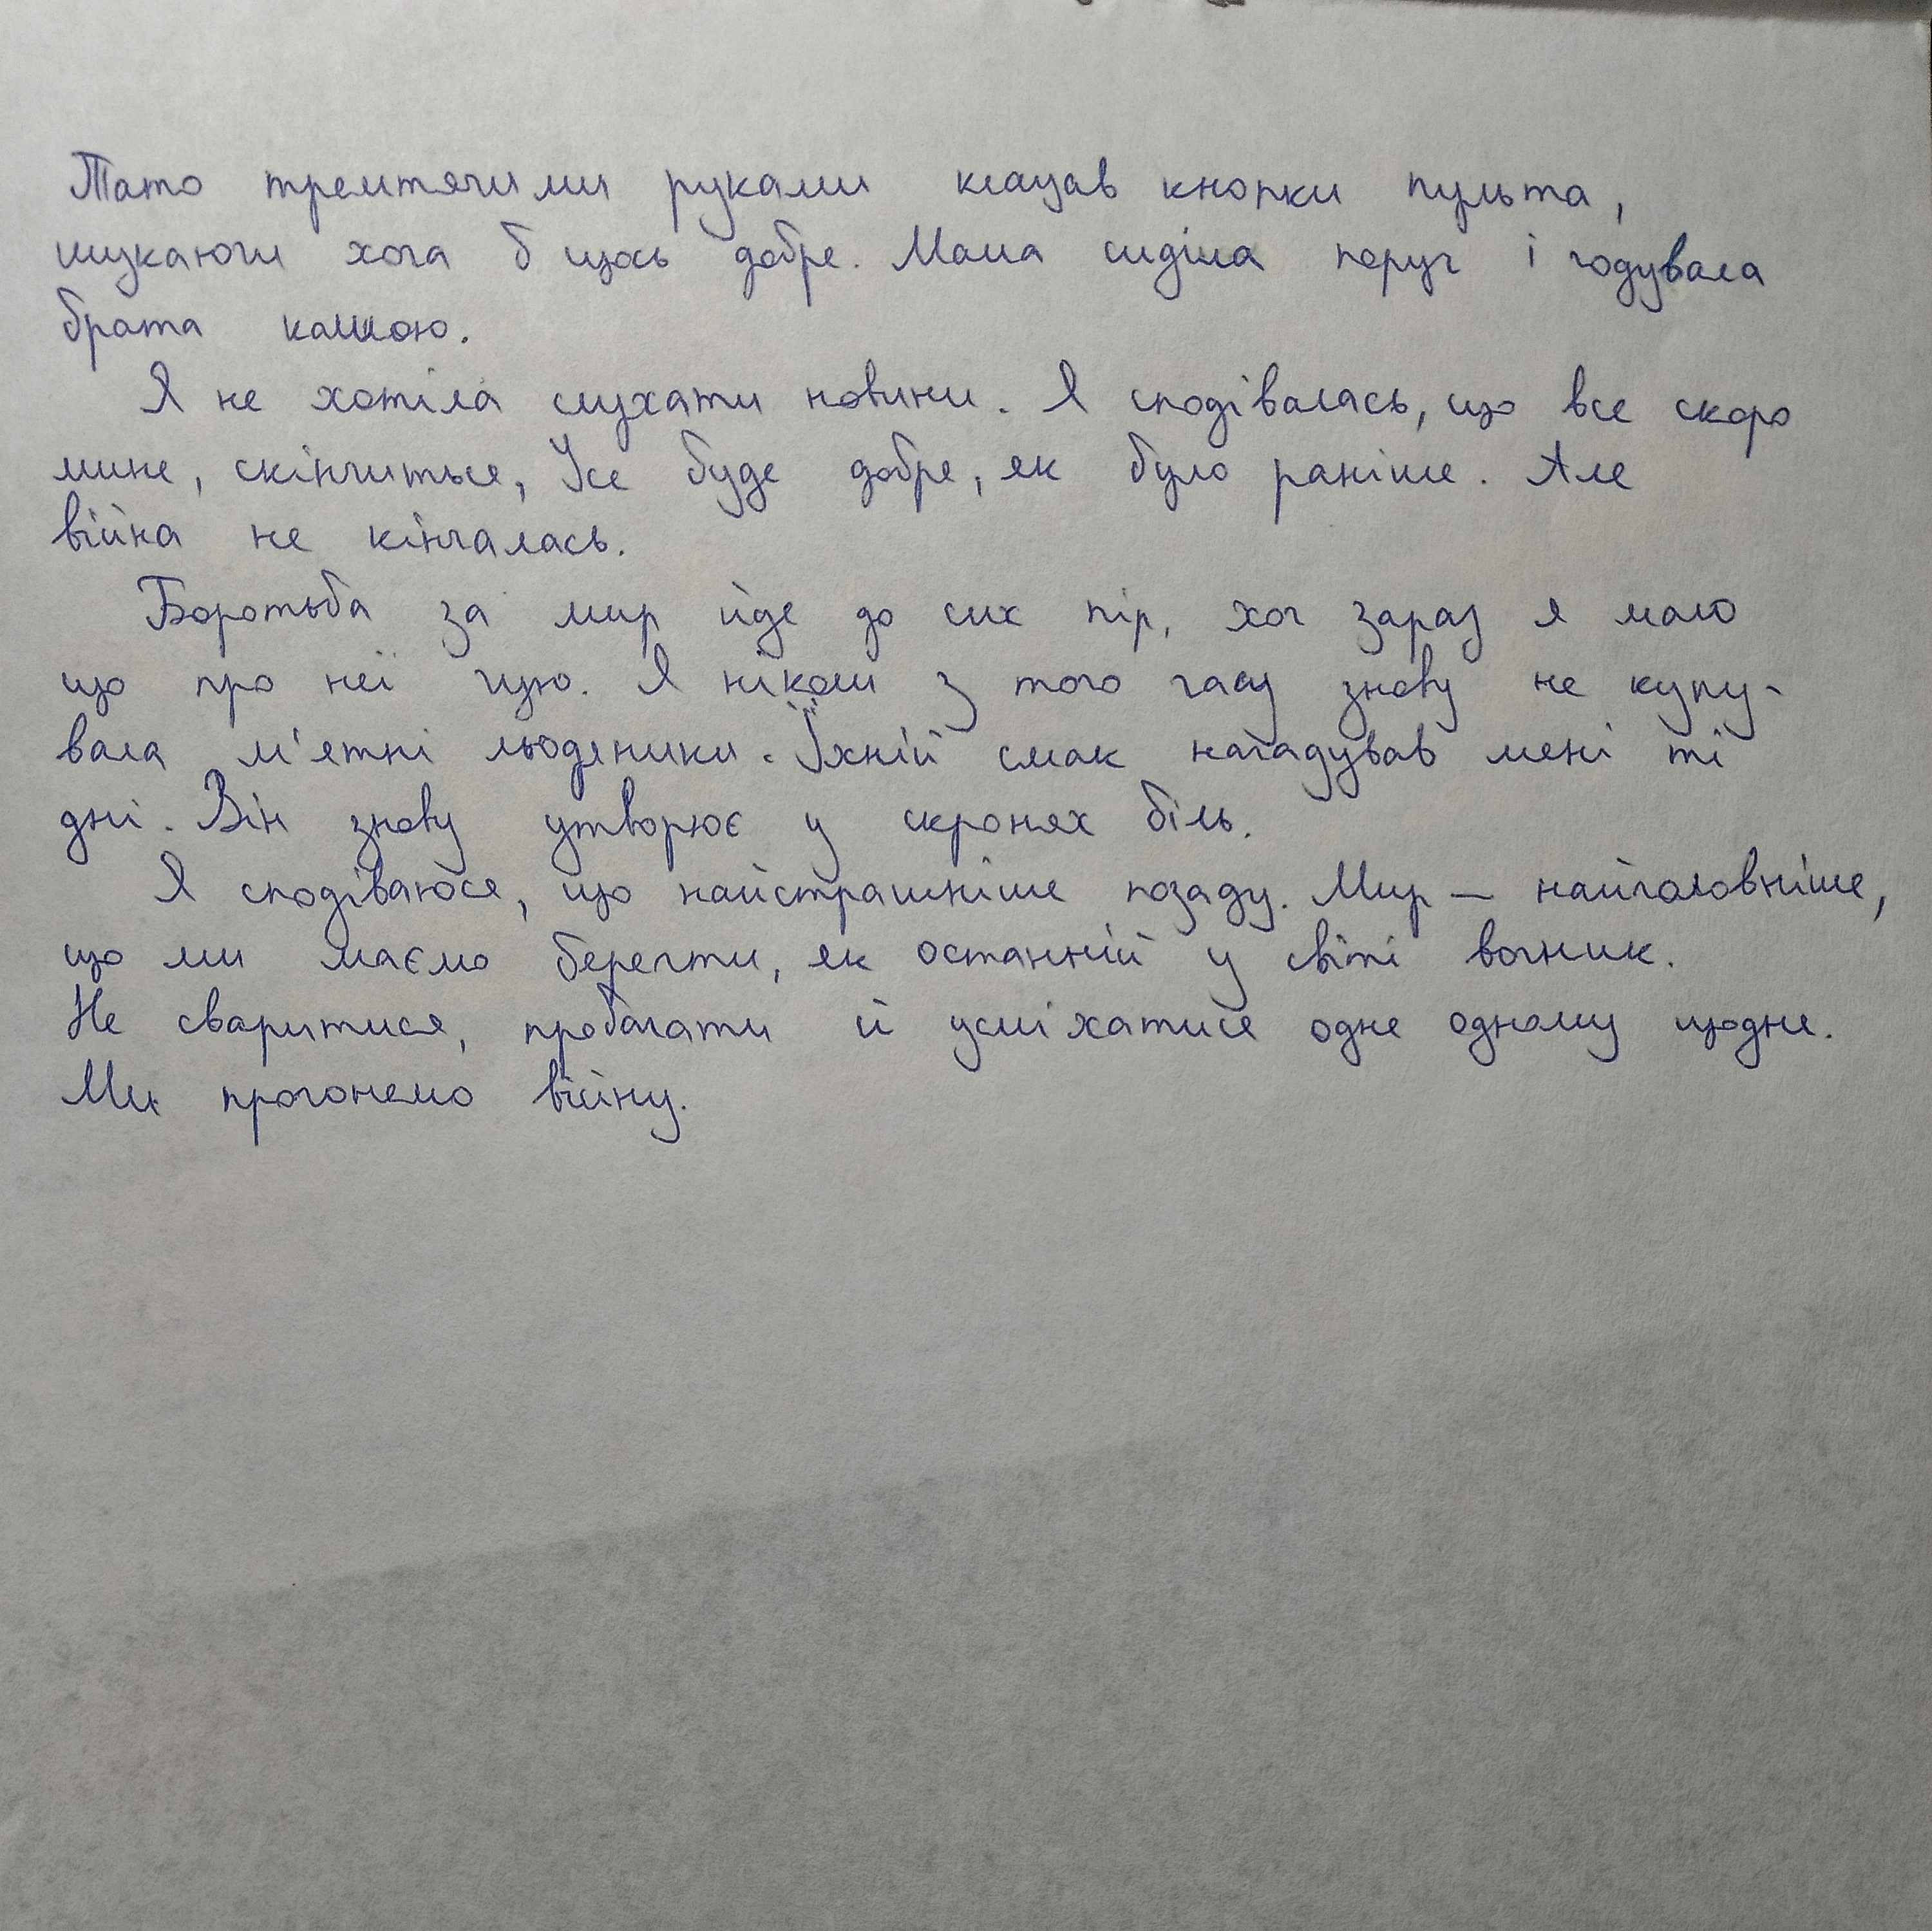 Тато тремтячими руками клацав кнопки пульта,
шукаючи хоча б щось добре. Мама сиділа поруч і годувала
брата кашою.
Я не хотіла слухати новини. Я сподівалась, що все скоро
мине, скінчиться, Усе буде добре, як було раніше. Але
війна не кінчалась.
Боротьба за мир йде до сих пір, хоч зараз я мало
що про неї чую. Я ніколи з того часу знову не купу-
вала м'ятні льодяники. Їхній смак нагадував мені ті
дні. Він знову утворює у скронях біль.
Я сподіваюся, що найстрашніше позаду. Мир – найголовніше,
що ми маємо берегти, як останній у світі вогник.
Не сваритися, пробачати й усміхатися одне одному щодня.
Ми прогонемо війну.